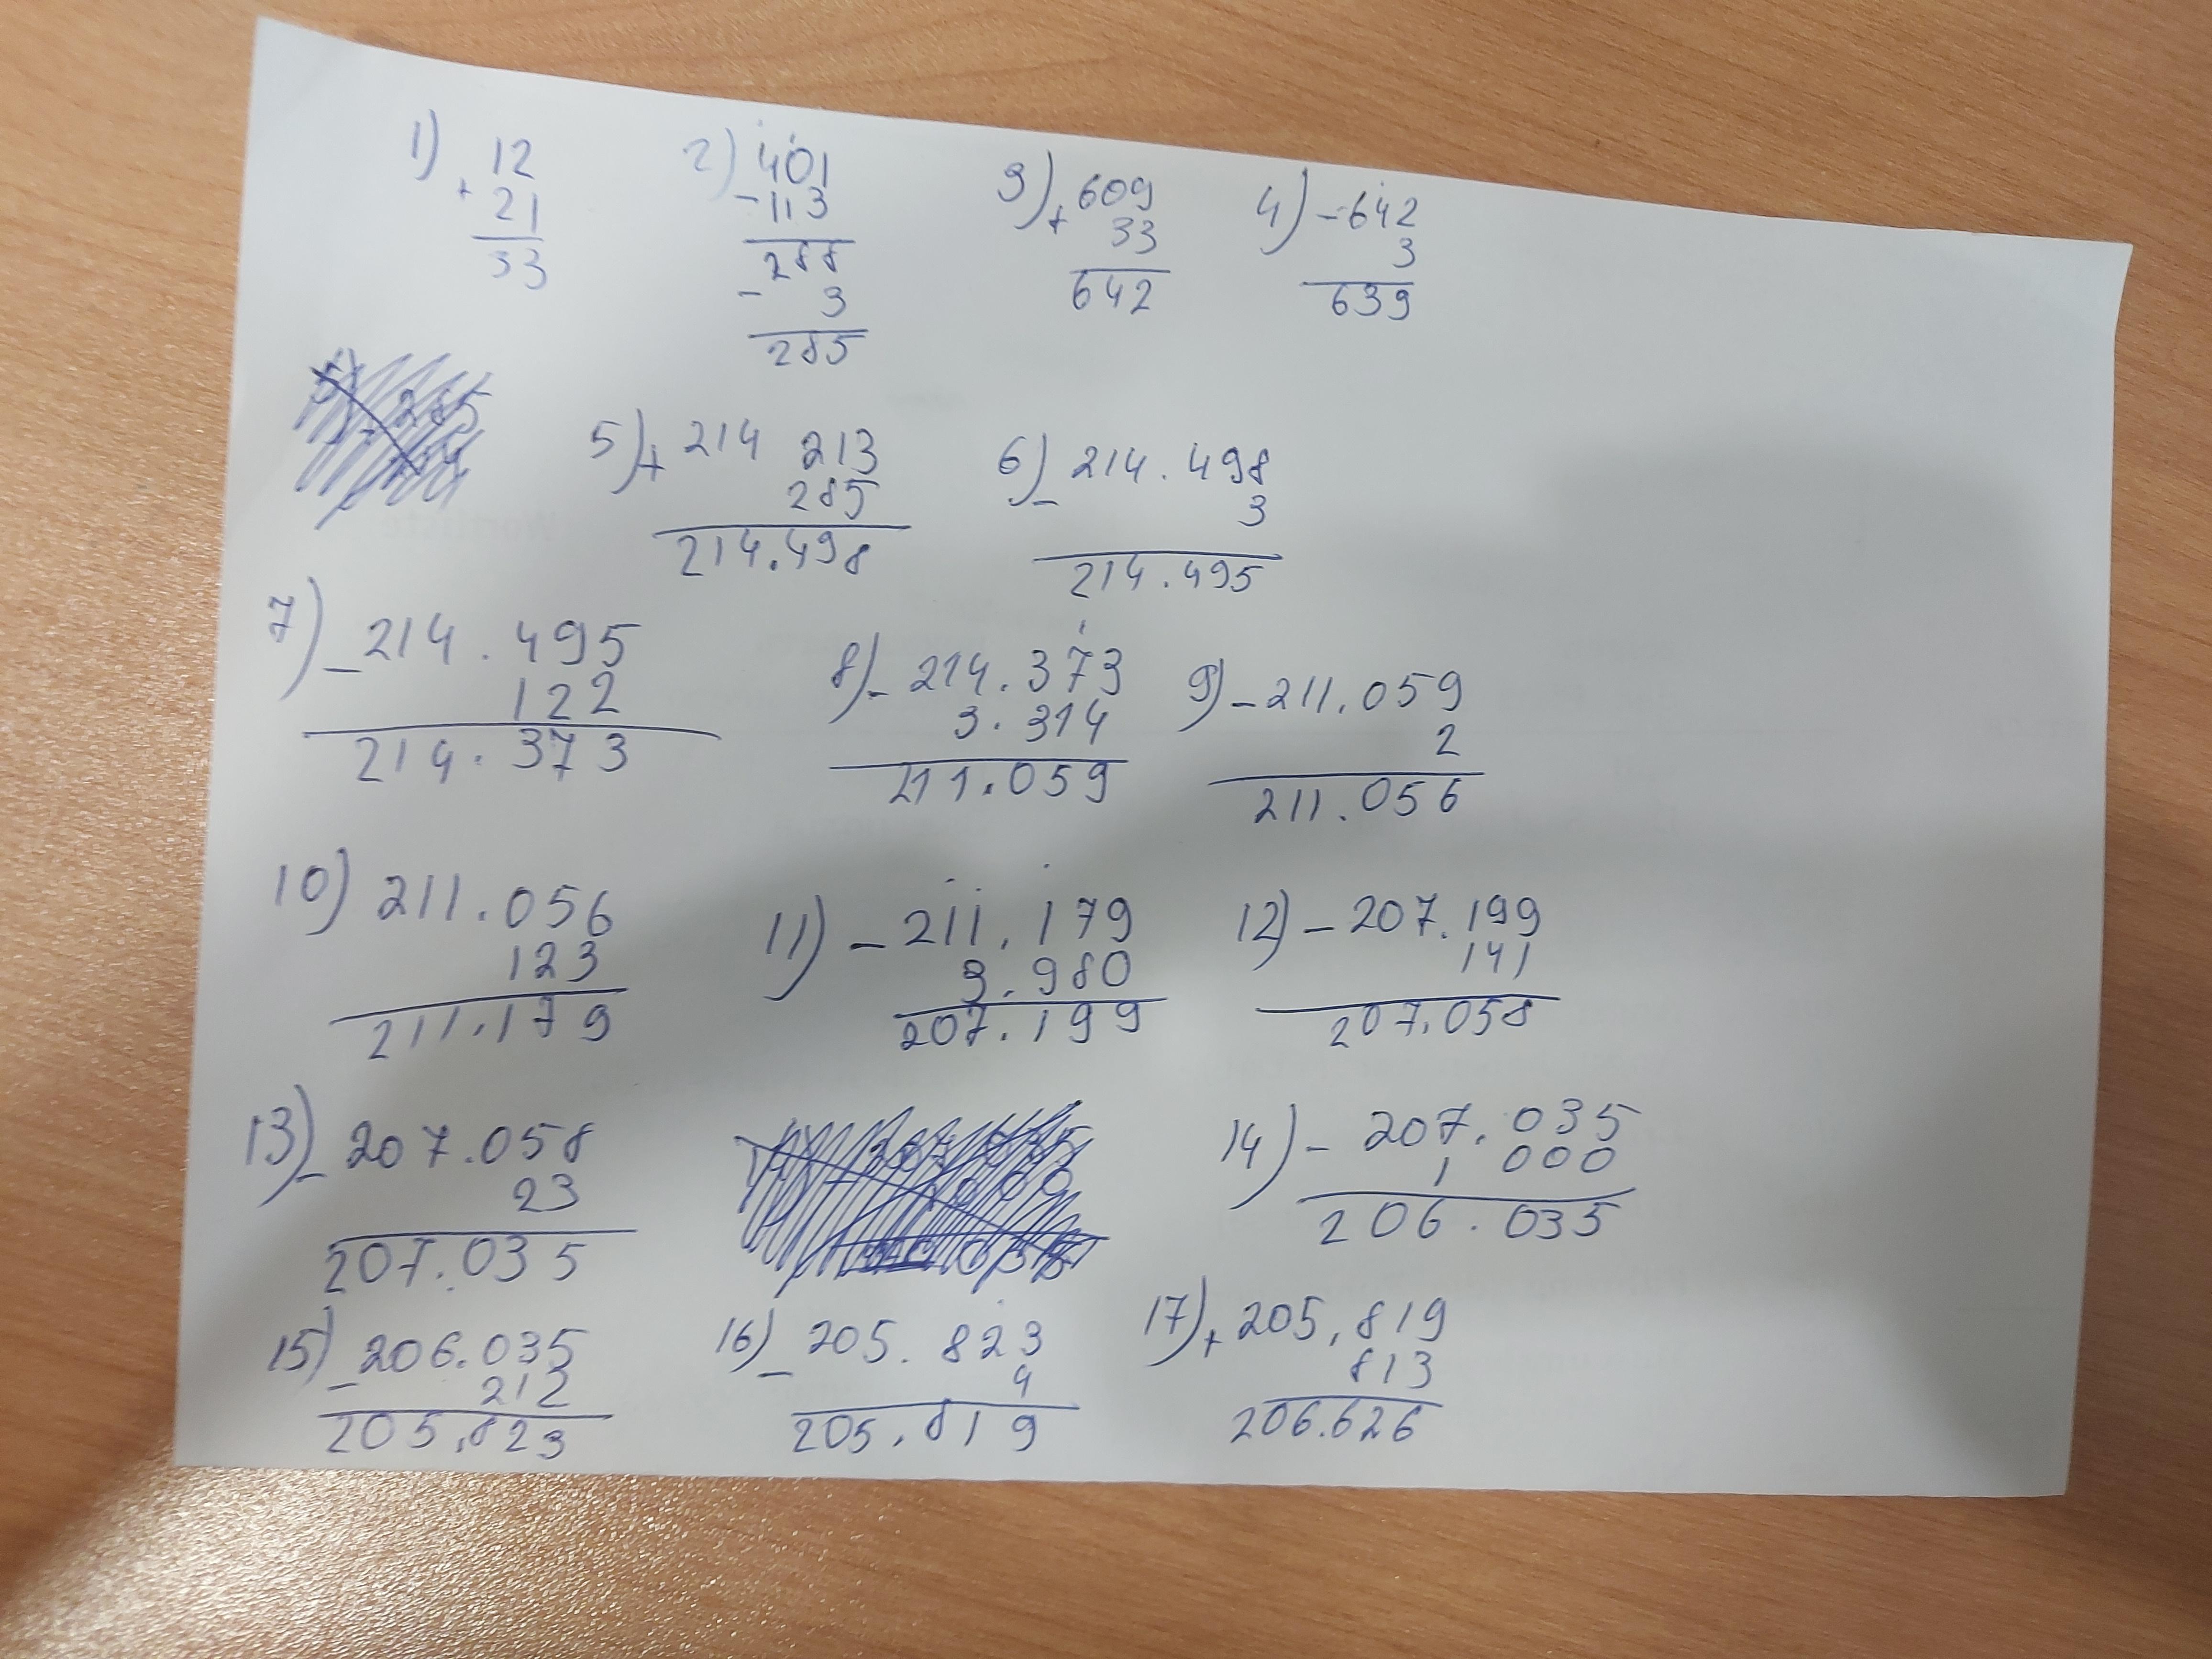 1) + 12
21
33
2) 401
- 113
288
- 3
285
3) + 609
33
642
4) - 642
3
639
5) + 214 213
285
214.498
6) - 214.498
3
214.495
7) - 214.495
122
214.373
8) - 214.373
3.314
211.059
9) - 211.059
2
211.056
10) 211.056
123
211.179
11) - 211.179
3.980
207.199
12) - 207.199
141
207.058
13) - 207.058
23
207.035
14) - 207.035
1 000
206.035
15) - 206.035
212
205.823
16) - 205.823
4
205.819
17) + 205.819
813
206.626